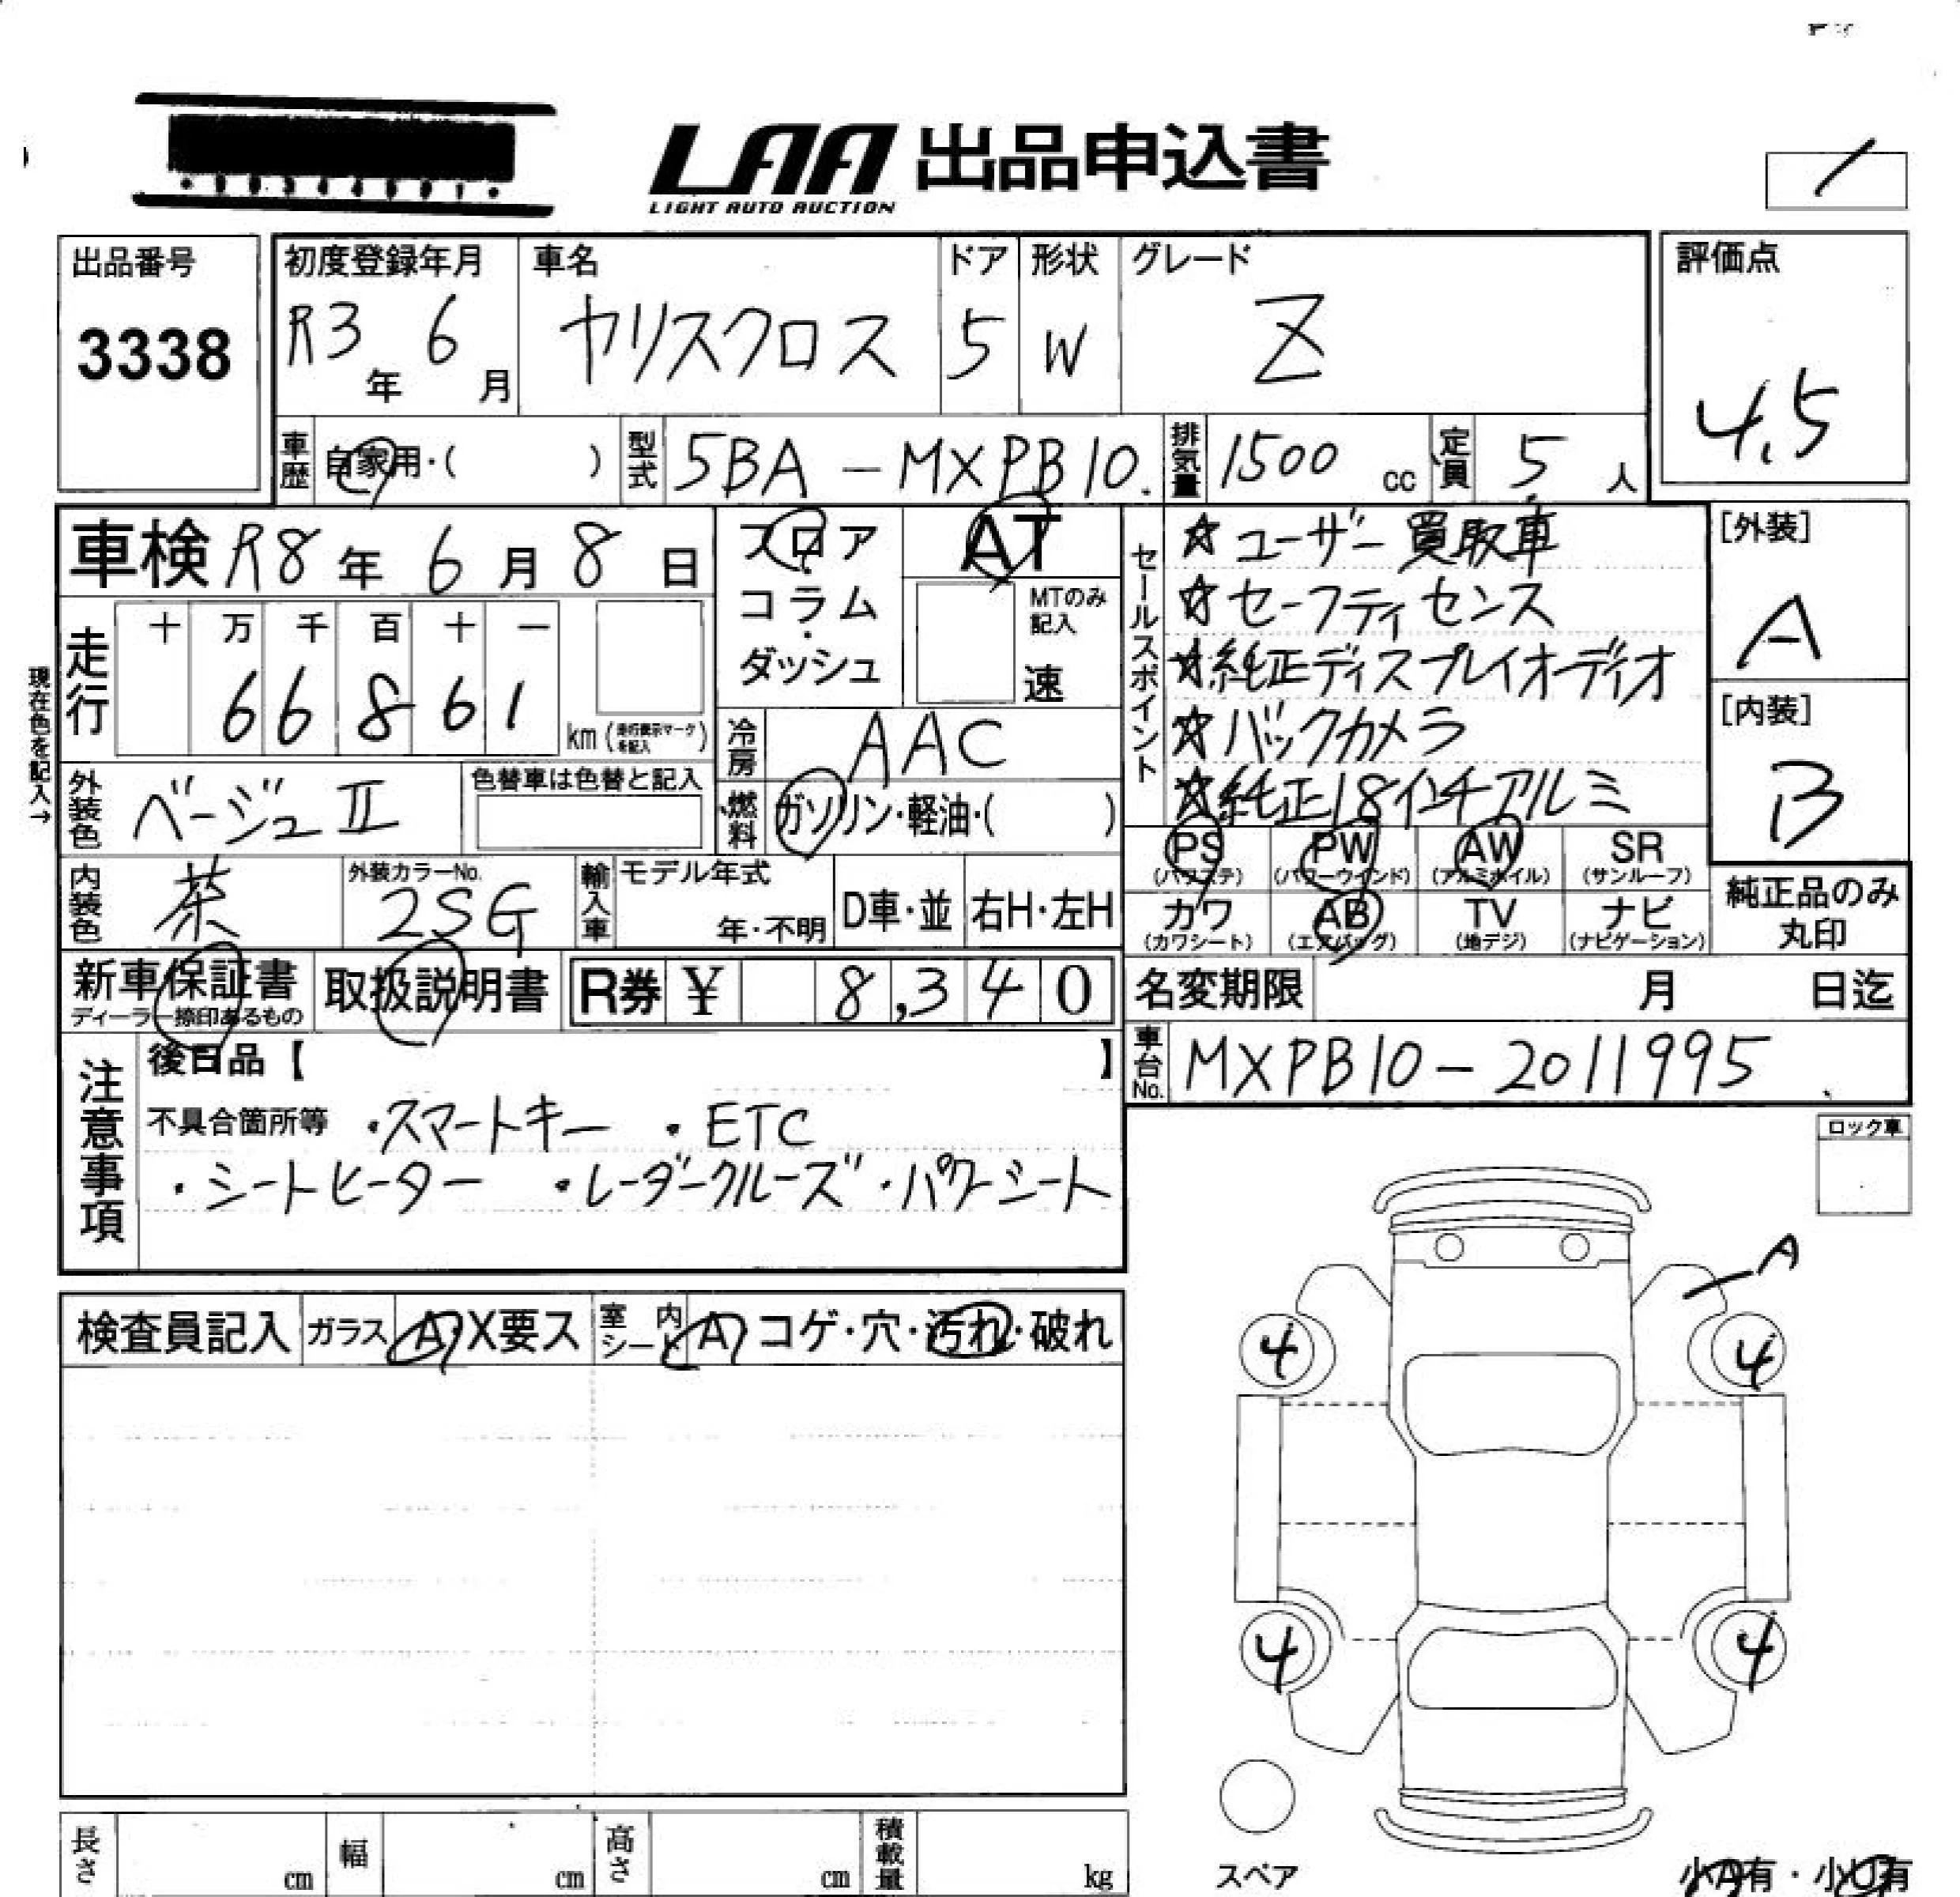 LAA 出品申込書
LIGHT AUTO AUCTION
出品番号
3338
初度登録年月
R3年 6月
車名
ヤリスクロス
ドア
5
形状
W
グレード
Z
評価点
4.5
車歴 自家用・( )
型式 5BA-MXPB10
排気量 1500 cc
定員 5人
車検 R8年 6月 8日
フロア・コラム・ダッシュ
AT
MTのみ記入
速
セールスポイント
☆ユーザー買取車
☆セーフティセンス
☆純正ディスプレイオーディオ
☆バックカメラ
☆純正18インチアルミ
[外装]
A
[内装]
B
現在色を記入→
走行
十 万 千 百 十 一
6 6 8 6 1
km (走行表示マークを記入)
冷房 AAC
外装色 ベージュII
色替車は色替と記入
燃料 ガソリン・軽油・( )
内装色 茶
外装カラーNo.
2SG
輸入車 モデル年式
年・不明
D車・並 右H・左H
PS (パワステ)
PW (パワーウインド)
AW (アルミホイル)
SR (サンルーフ)
カワ (カワシート)
AB (エアバッグ)
TV (地デジ)
ナビ (ナビゲーション)
純正品のみ
丸印
新車保証書
ディーラー捺印あるもの
取扱説明書
R券 ¥ 8,340
名変期限 月 日迄
車台No. MXPB10-2011995
注意事項
後日品【 】
不具合箇所等 ・スマートキー ・ETC
・シートヒーター ・レーダークルーズ ・パワーシート
ロック車
検査員記入 ガラス A・X要ス 室内シート A コゲ・穴・汚れ・破れ
A
4 4
4 4
スペア
長さ cm 幅 cm 高さ cm 積載量 kg
小A有・小U有